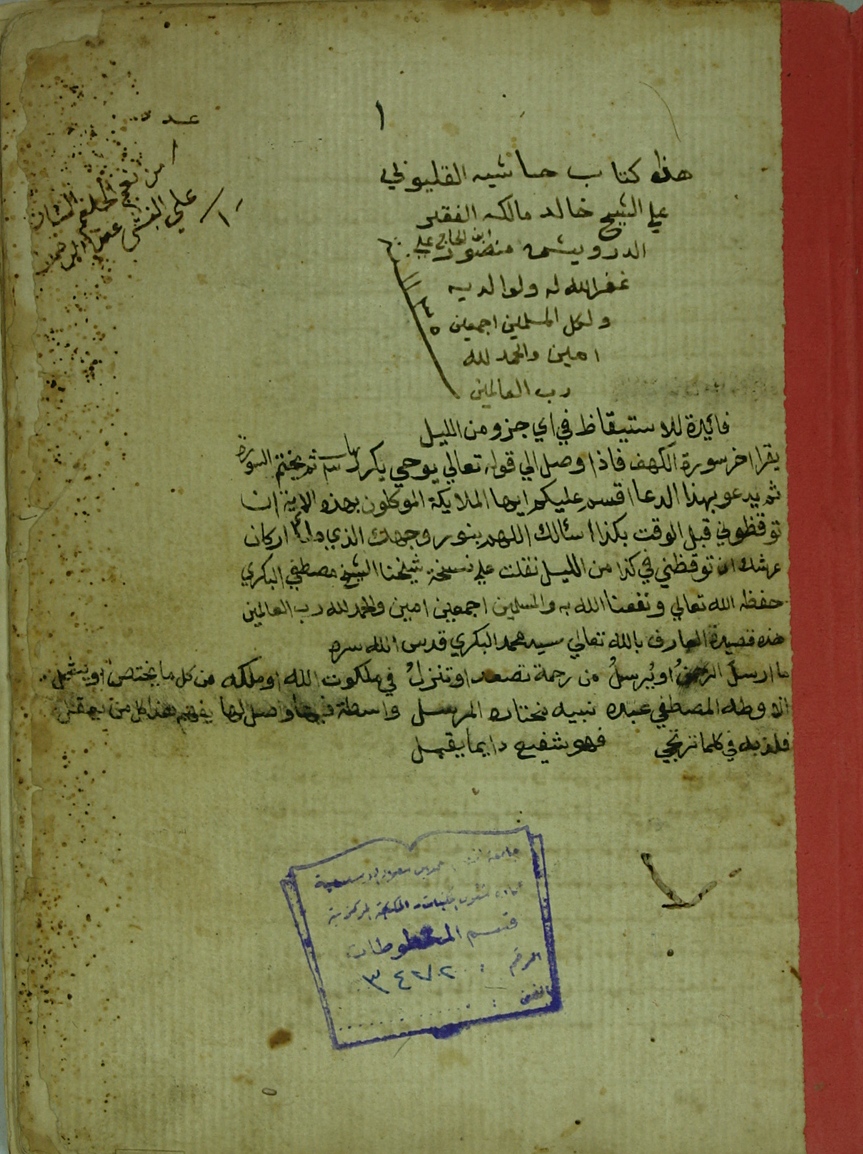 ١
عدد
١
هذا كتاب حاشيه القليوبي
علي الشيخ خالد مالكه الفقير
الدرويش منصور ابن الحاج علي
غفر الله له ولوالديه
ولكل المسلمين اجمعين
امين والحمد لله
رب العالمين
فائدة للاستيقاظ في اي جزو من الليل
يقرا اخر سورة الكهف فاذا وصل الي قوله تعالي يوحي يكررها ثم يختم السورة
ثم يدعو بهذا الدعا اقسم عليكم ايها الملايكة الموكلون بهذه الاية ان
توقظوني قبل الوقت بكذا اسالك اللهم بنور وجهك الذي ملأ اركان
عرشك ان توقظني في كذا من الليل نقلت علي نسخة شيخنا الشيخ مصطفي البكري
حفظه الله تعالي ونفعنا الله به والمسلمين اجمعين امين والحمد لله رب العالمين
هذه قصيدة العارف بالله تعالي سيد محمد البكري قدس الله سره
ما ارسل الرحمن او يُرسلُ من رحمة تصعد او تنزلُ في ملكوت الله او ملكه من كل ما يختص او يشمل
الا وطه المصطفي عبده نبيه مختاره المرسل واسطة فيها واصل لها يفهم هذا كل من يعقل
فلذ به في كلما ترتجي فهو شفيع دايما يقبل
قسم المخطوطات
الرقم : ٣٤٢٧٢